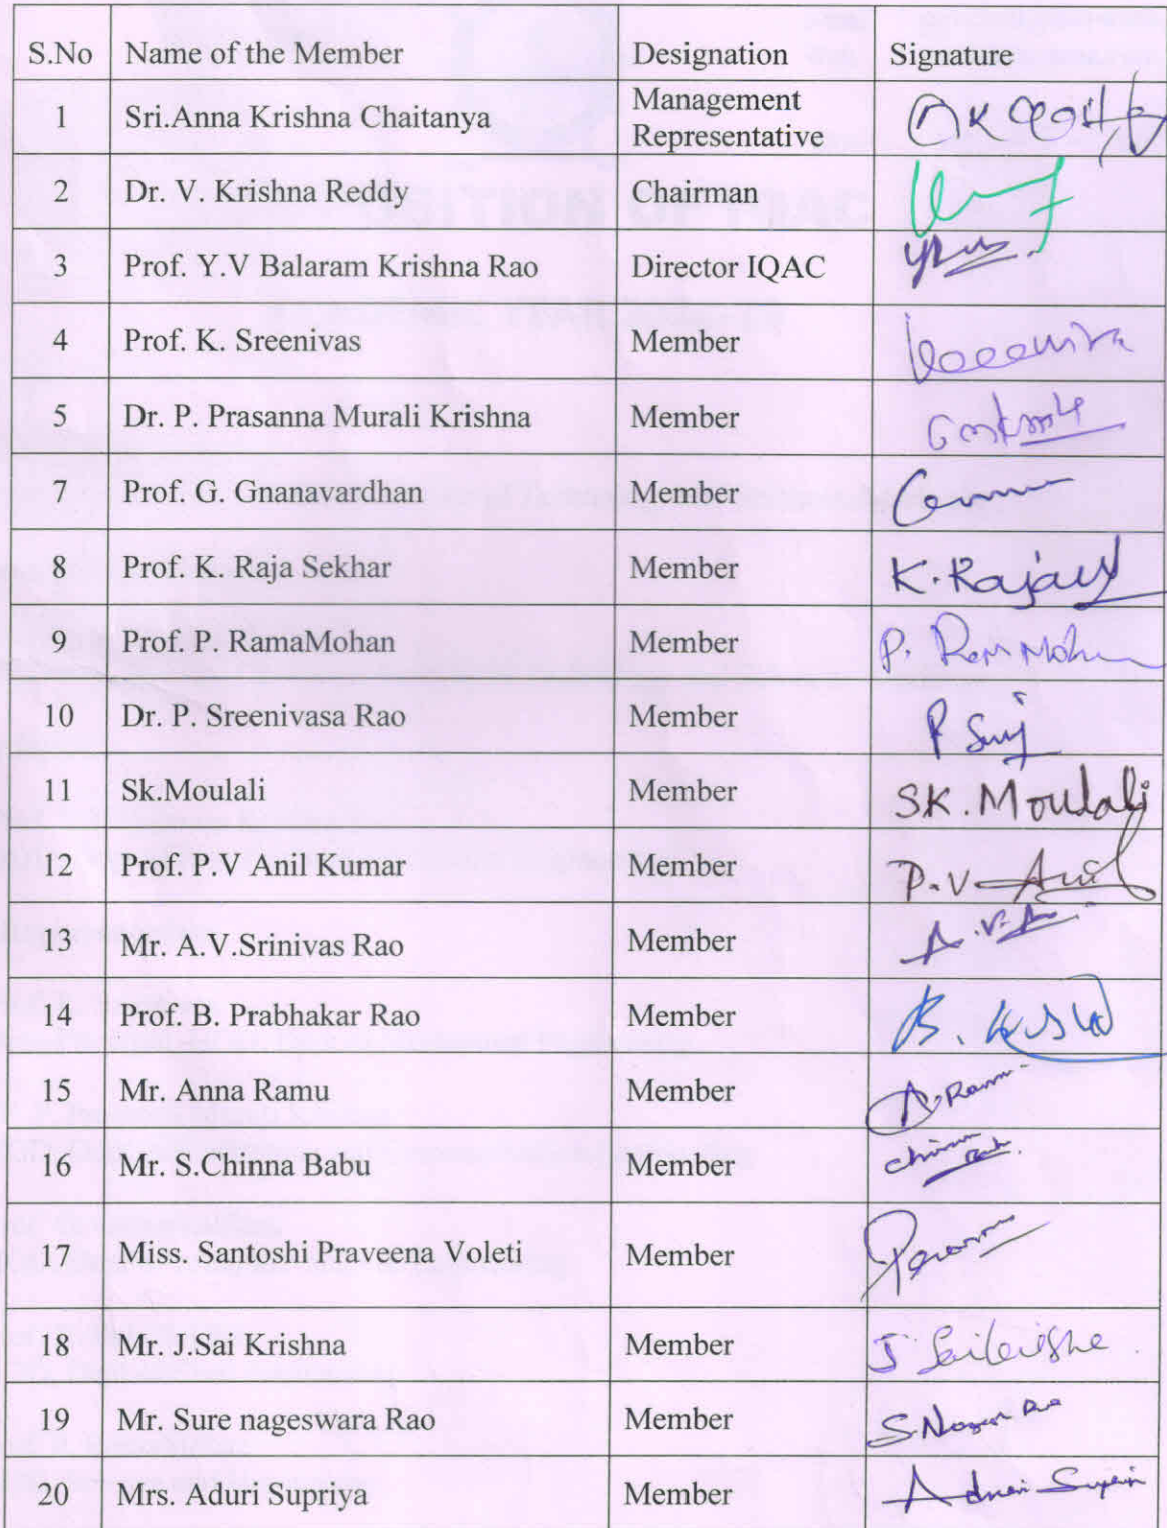 S.No Name of the Member Designation Signature
1 Sri.Anna Krishna Chaitanya Management Representative
2 Dr. V. Krishna Reddy Chairman
3 Prof. Y.V Balaram Krishna Rao Director IQAC
4 Prof. K. Sreenivas Member
5 Dr. P. Prasanna Murali Krishna Member
7 Prof. G. Gnanavardhan Member
8 Prof. K. Raja Sekhar Member K.Raja
9 Prof. P. RamaMohan Member P. Ram Mohan
10 Dr. P. Sreenivasa Rao Member
11 Sk.Moulali Member SK.Moulali
12 Prof. P.V Anil Kumar Member P.V.Anil
13 Mr. A.V.Srinivas Rao Member
14 Prof. B. Prabhakar Rao Member
15 Mr. Anna Ramu Member A.Ramu
16 Mr. S.Chinna Babu Member
17 Miss. Santoshi Praveena Voleti Member
18 Mr. J.Sai Krishna Member J Saikrishna
19 Mr. Sure nageswara Rao Member
20 Mrs. Aduri Supriya Member Aduri Supriya